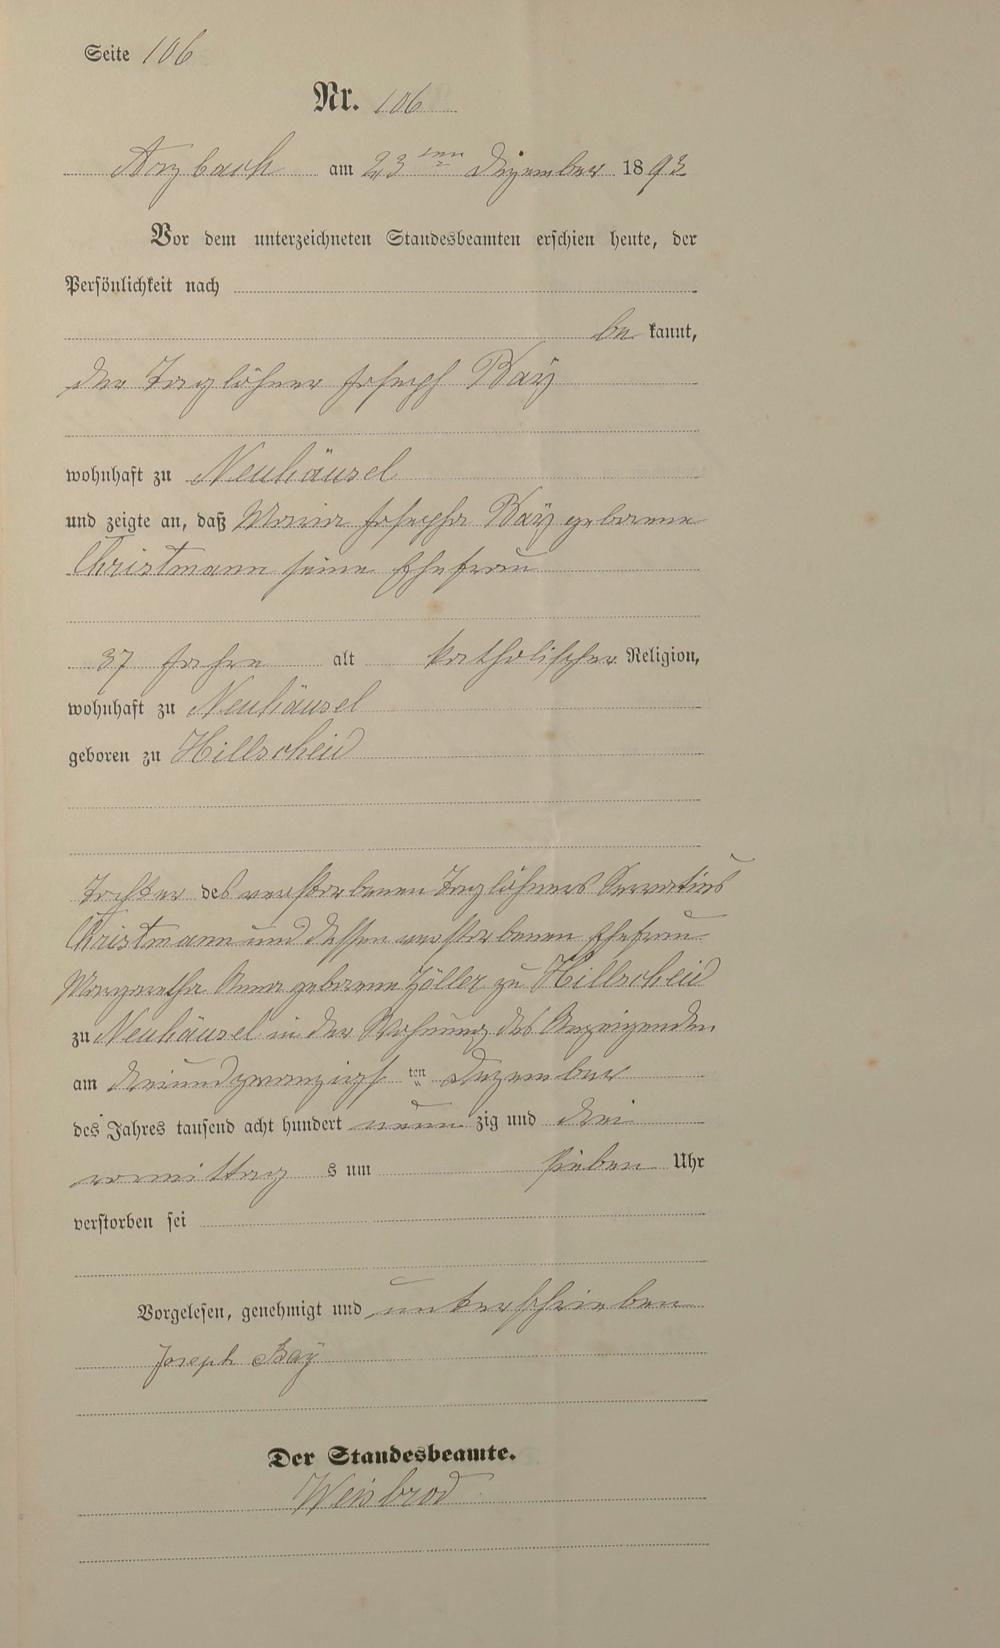 Seite 106
Nr. 106
Arzbach am 23ten Dezember 1893
Vor dem unterzeichneten Standesbeamten erschien heute, der
Persönlichkeit nach
be kannt,
der Taglöhner Joseph Baÿ
wohnhaft zu Neuhäusel
und zeigte an, daß Maria Josepha Baÿ geborene
Christmann seine Ehefrau
37 Jahre alt katholischer Religion,
wohnhaft zu Neuhäusel
geboren zu Hillscheid
Tochter des verstorbenen Taglöhners Servatius
Christmann und dessen verstorbenen Ehefrau
Margaretha Anna geborene Zöller zu Hillscheid
zu Neuhäusel in der Wohnung des Anzeigenden
am dreiundzwanzigsten Dezember
des Jahres tausend acht hundert neun zig und drei
vormittag s um sieben Uhr
verstorben sei
Vorgelesen, genehmigt und unterschrieben
Joseph Baÿ
Der Standesbeamte.
Weisbrod